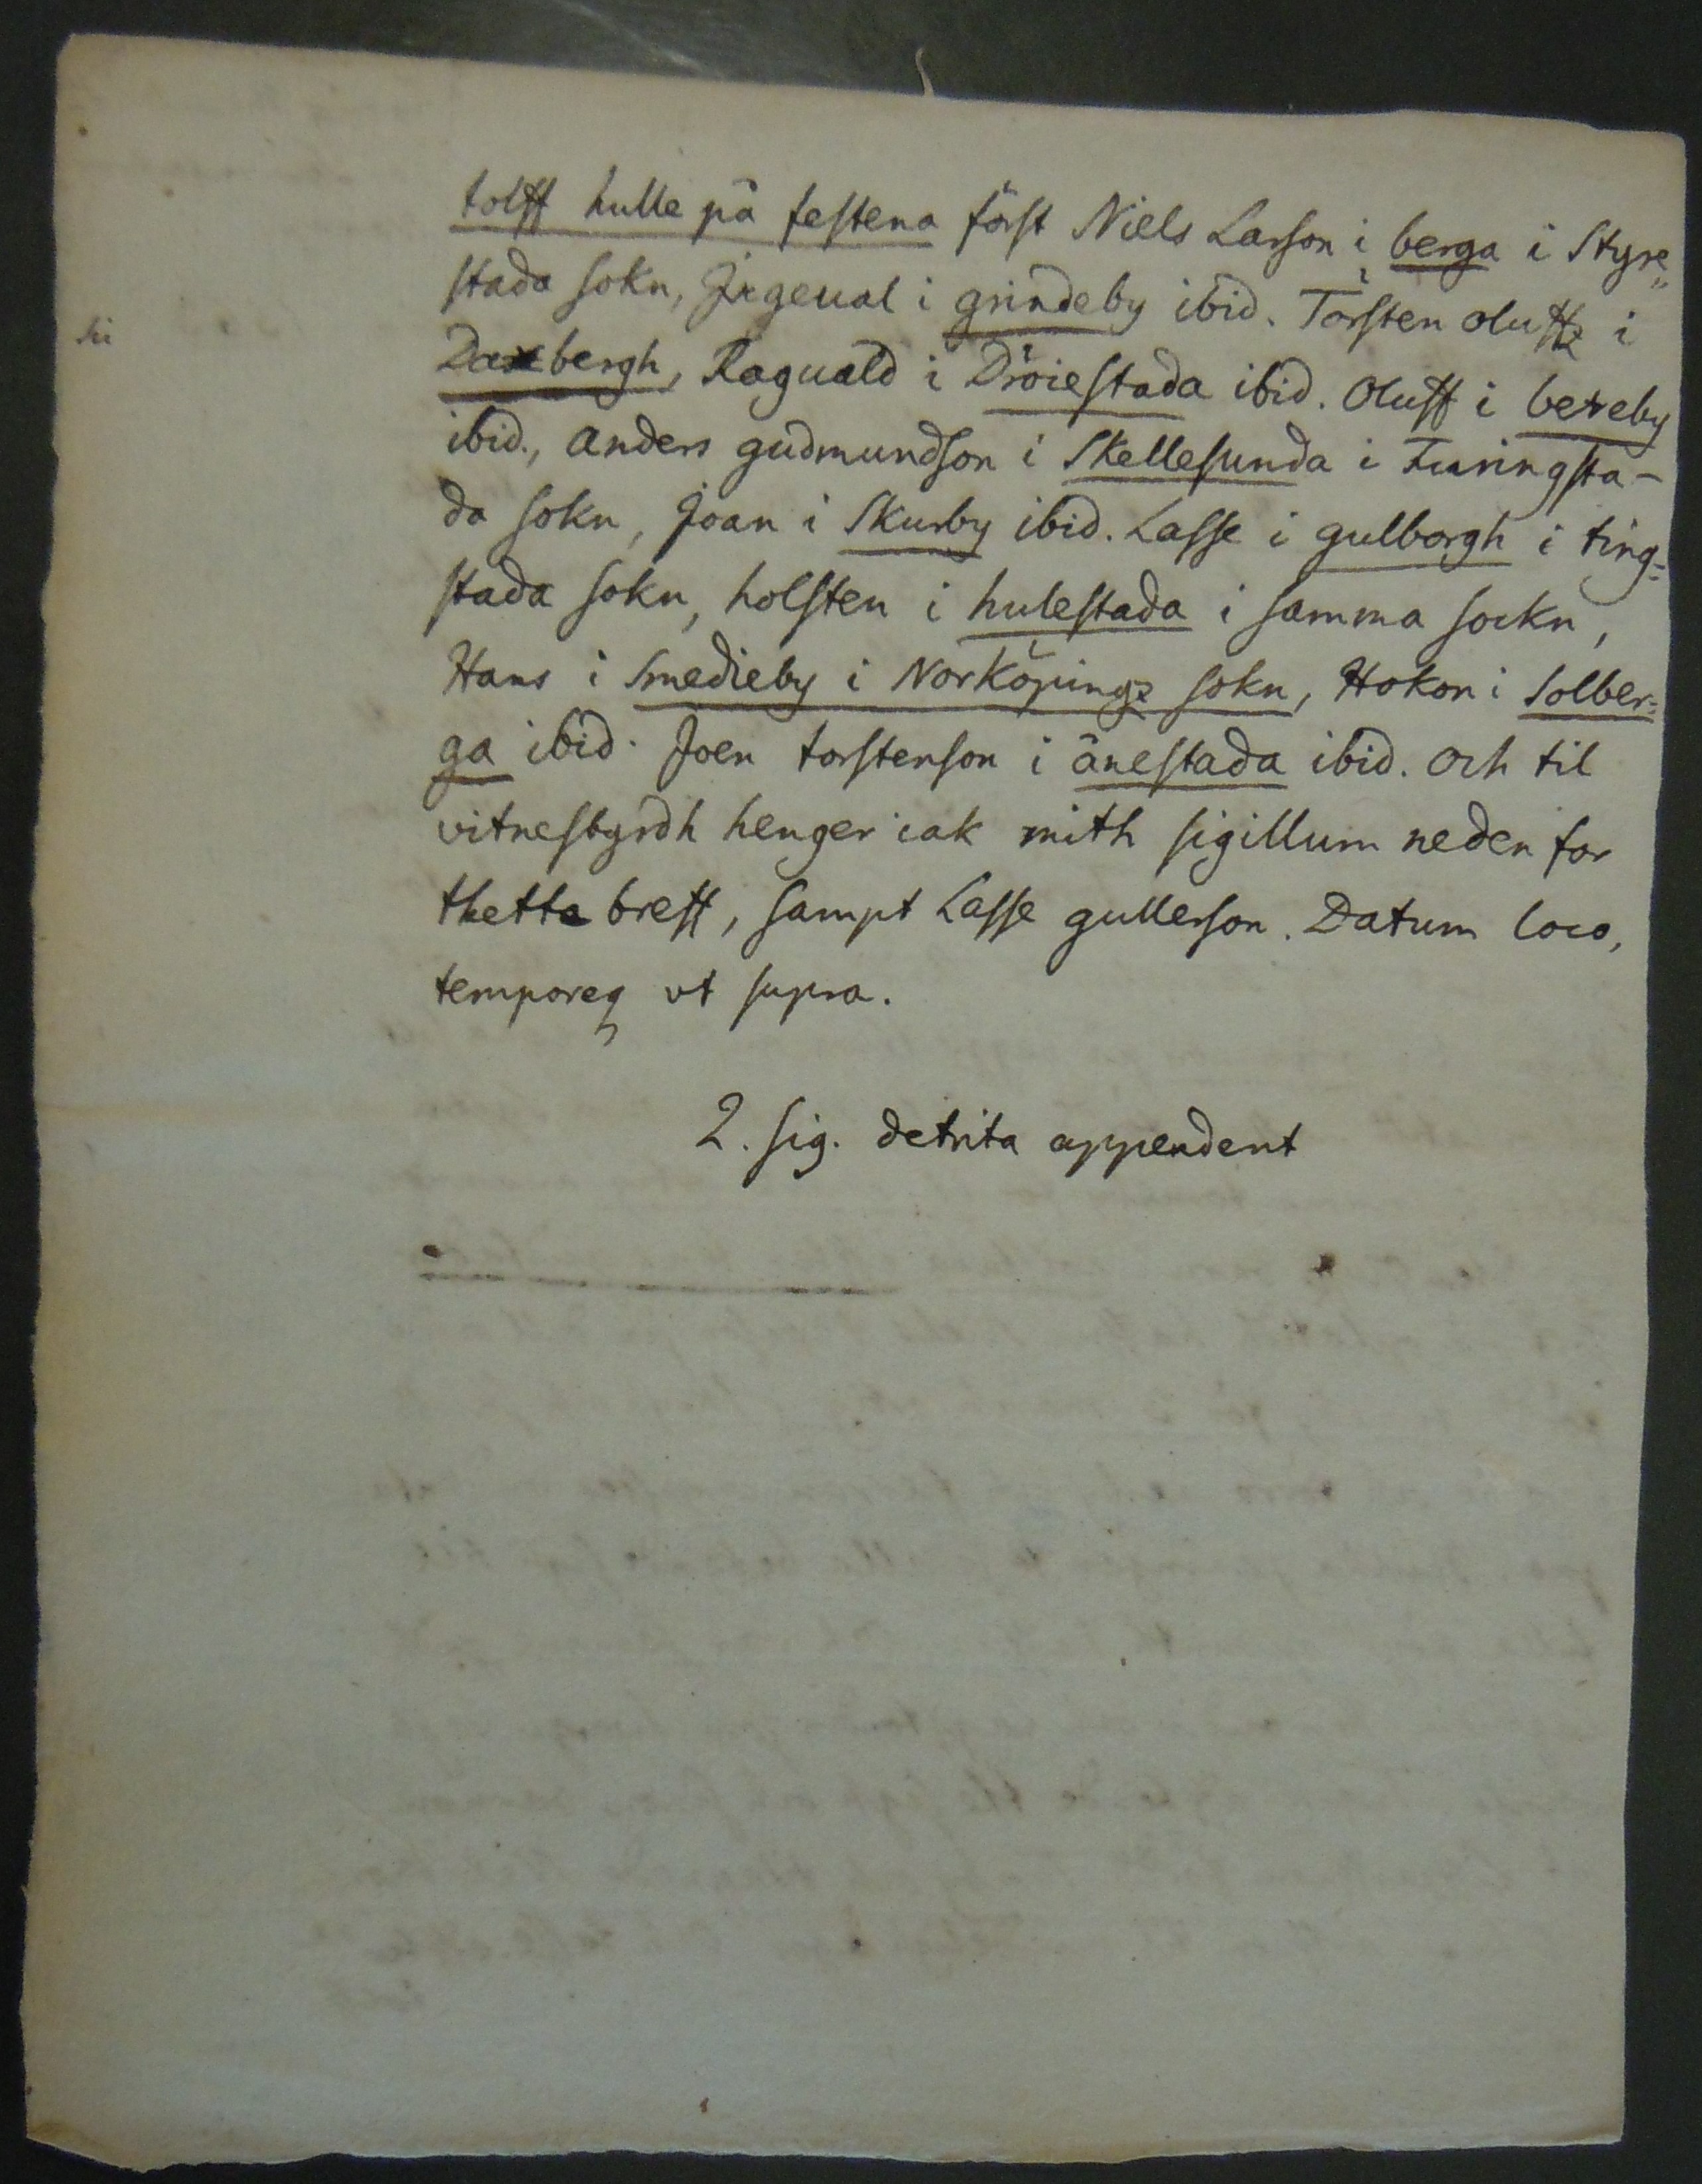 tolff hulle på festena först Niels Larson i berga i Styre„
stada sokn, Jngeual i grindeby ibid. Torsten oluffz i
sic
Daxbergh, Raguald i Dröiestada ibid. Oluff i bexeby
ibid., anders gudmundson i Skellesunda i Furingsta-
da sokn, Joan i Skurby ibid. Lasse i gulborgh i ting=
stada sokn, holsten i hulestada i samma sockn,
Hans i Smedieby i Norköpingz sokn, Hokon i Solber=
ga ibid. Joen torstenson i ånestada ibid. Och til
vitnesbyrdh henger iak mith sigillum neden for
thetta breff, sampt Lasse gullerson. Datum loco,
temporeq vt supra.
2. sig. detrita appendent